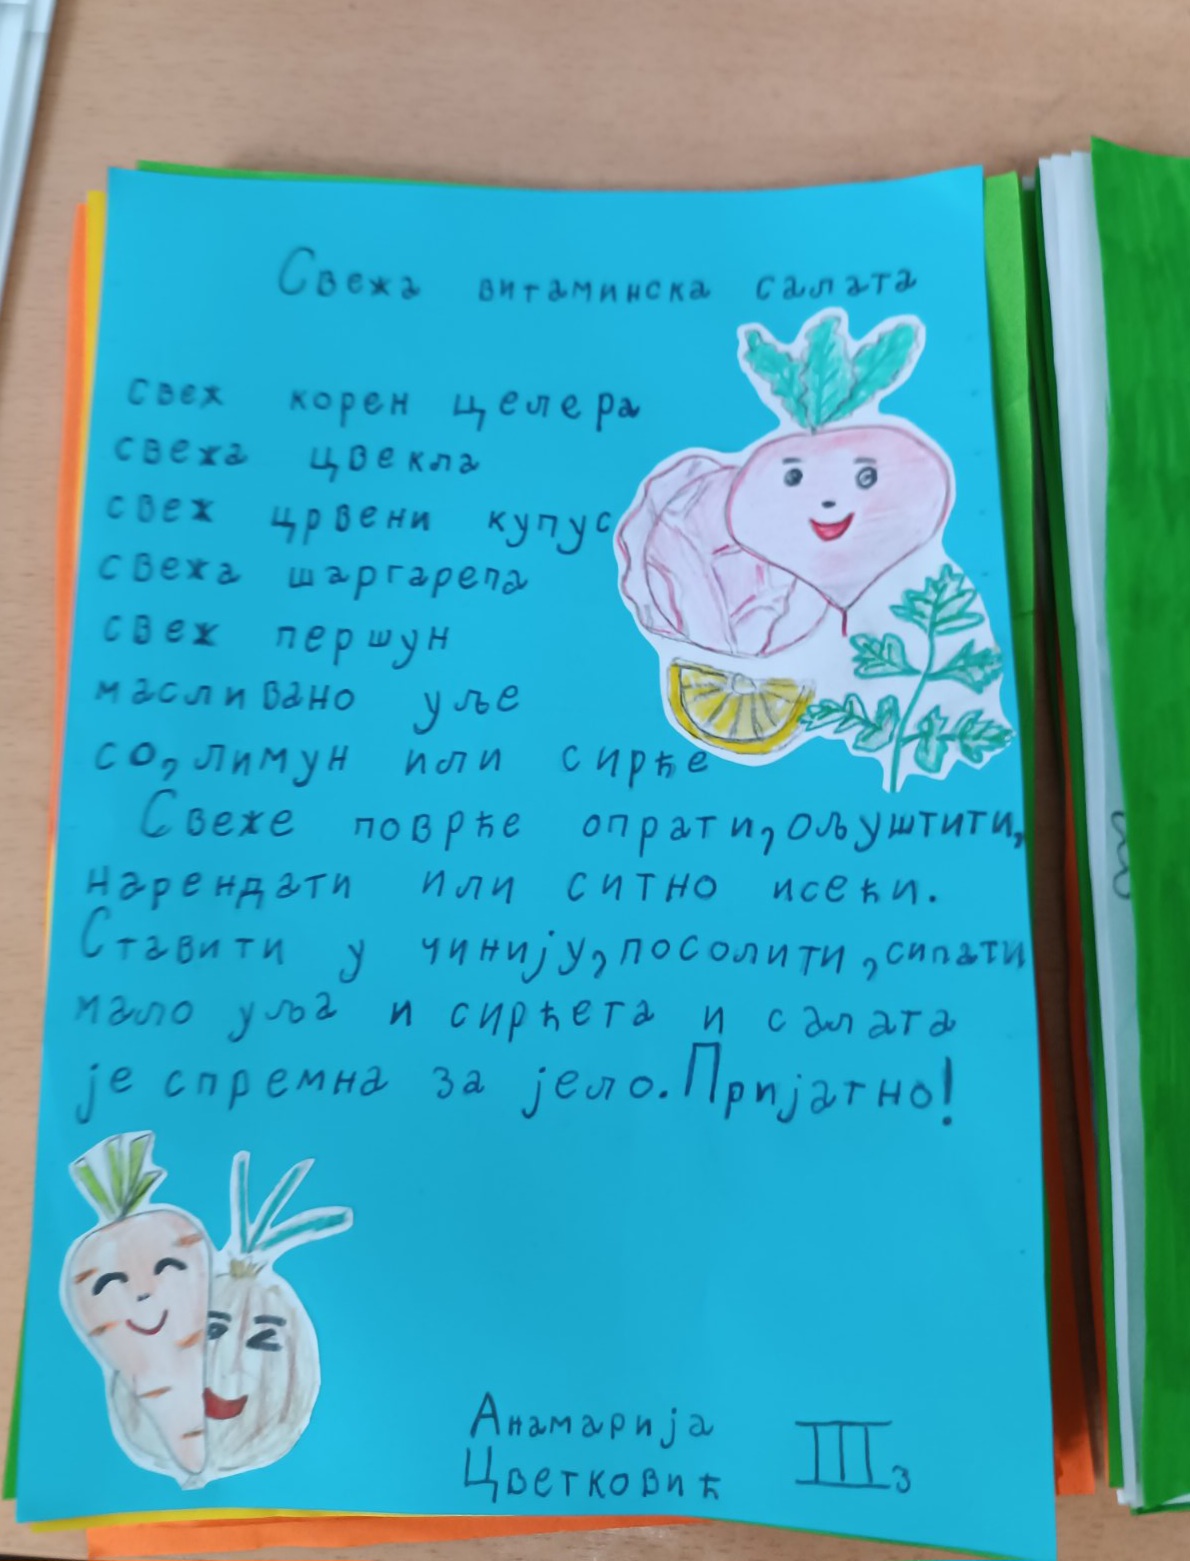 Свежа витаминска салата
свеж корен целера
свежа цвекла
свеж црвени купус
свежа шаргарепа
свеж першун
масливано уље
со, лимун или сирће
Свеже поврће опрати, ољуштити,
нарендати или ситно исећи.
Ставити у чинију, посолити, сипати
мало уља и сирћета и салата
је спремна за јело. Пријатно!
Анамарија
Цветковић
III3